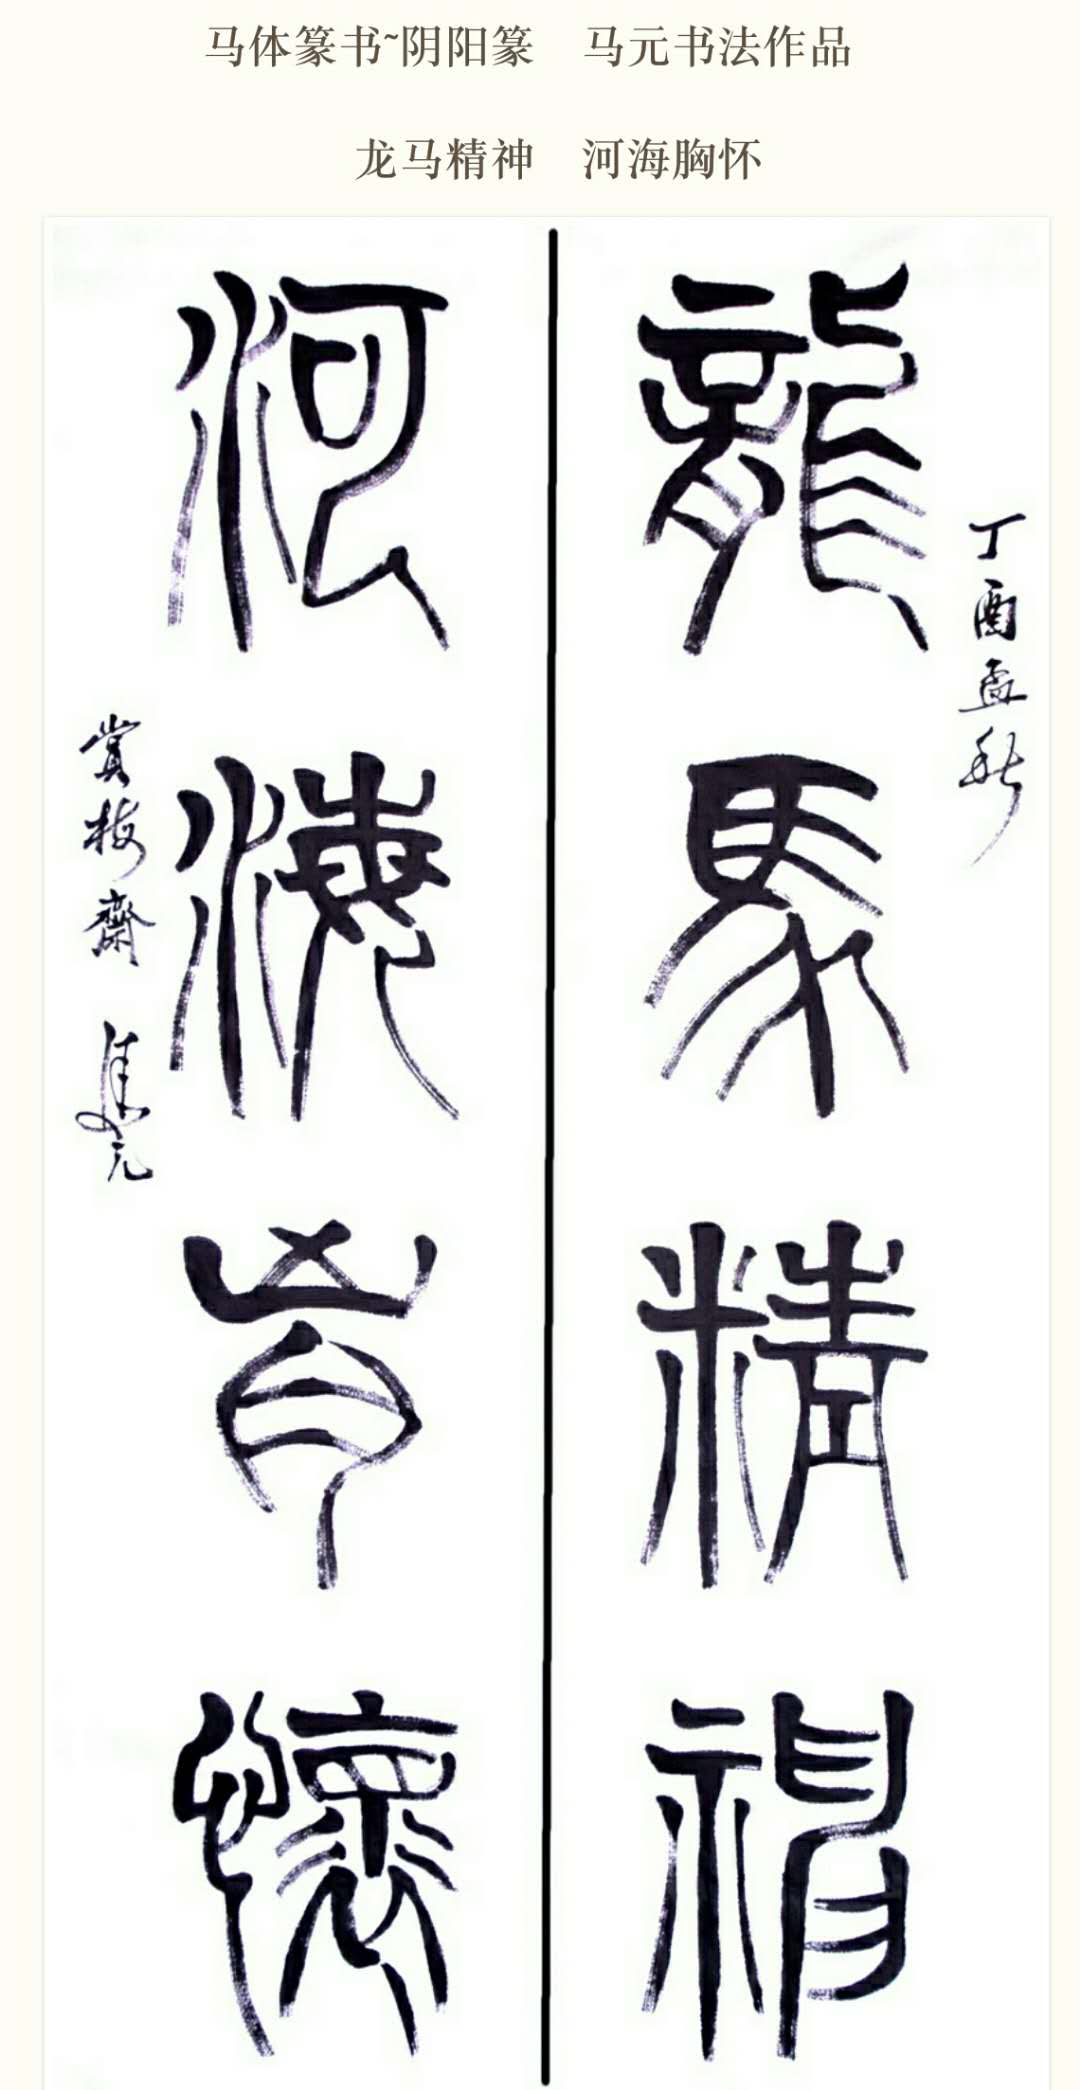 马体篆书~阴阳篆　马元书法作品
龙马精神　河海胸怀
丁酉孟秋
龍馬精神
河海胷懷
賞梅齋 馬元